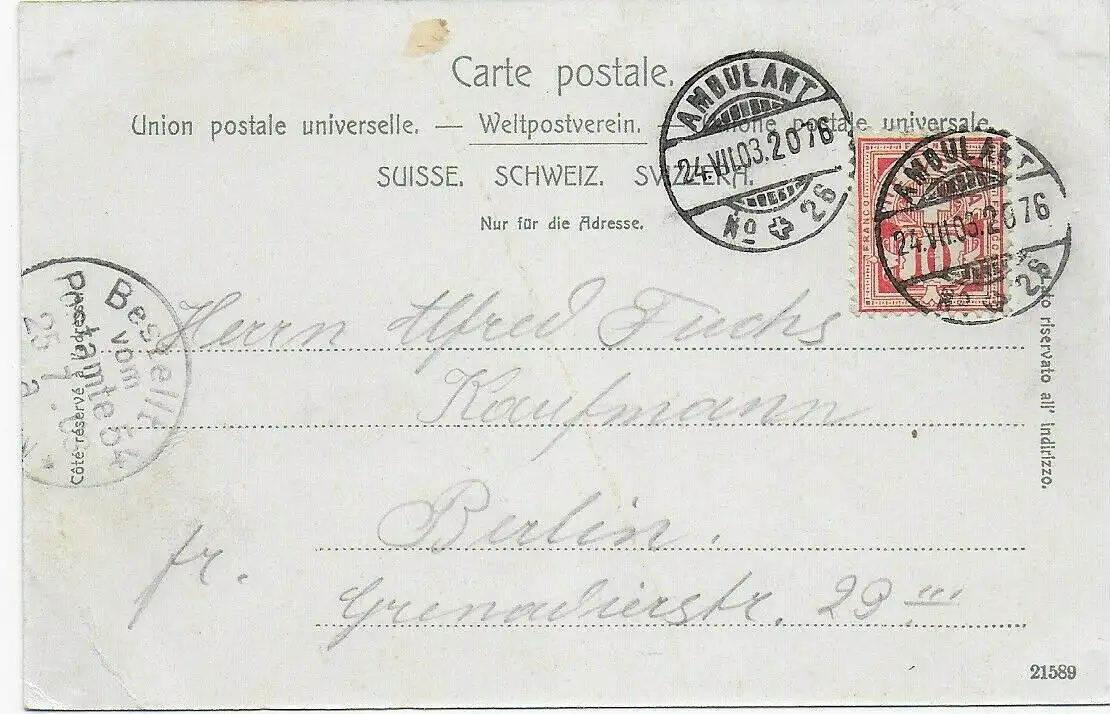 Carte postale.
Union postale universelle. — Weltpostverein. — Unione postale universale.
SUISSE. SCHWEIZ. SVIZZERA.
Nur für die Adresse.
AMBULANT
24.VII.03.2076
No 26
AMBULANT
24.VII.03.2076
No 26
FRANCO
10
Bestellt
vom
Postamte 54
25 7 03
Côté réservé à l'adresse.
Lato riservato all' indirizzo.
Herrn Alfred Fuchs
Kaufmann
Berlin.
fr.
Grenadierstr. 29 III
21589